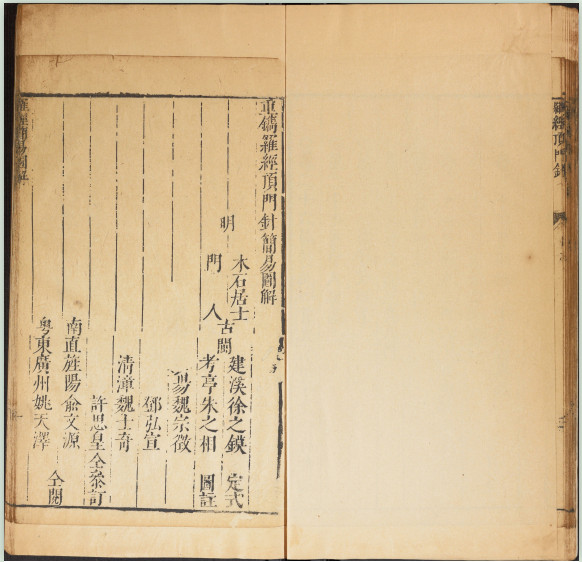 羅經頂門針
重鐫羅經頂門針簡易圖解
明
木石居士
古閩
建溪徐之鏌 定式
門人
考亭朱之相 圖註
魏宗徵
鄧弘宣
清漳魏士奇
許思皇仝叅訂
南直旌陽俞文源
粵東廣州姚天澤
仝閱